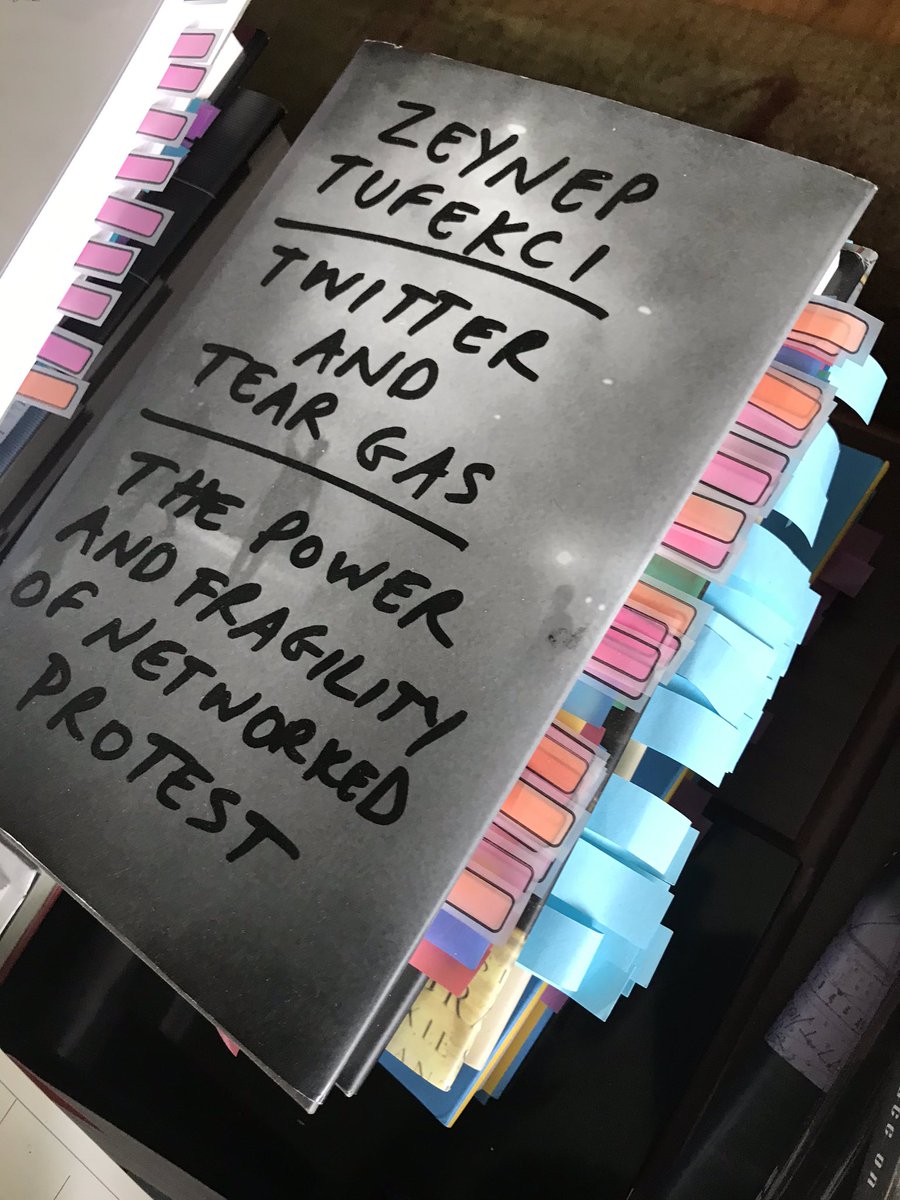 ZEYNEP
TUFEKCI
TWITTER
AND
TEAR GAS
THE POWER
AND FRAGILITY
OF NETWORKED
PROTEST